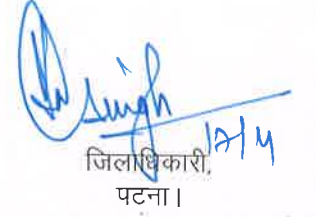 singh
12/4
जिलाधिकारी,
पटना।